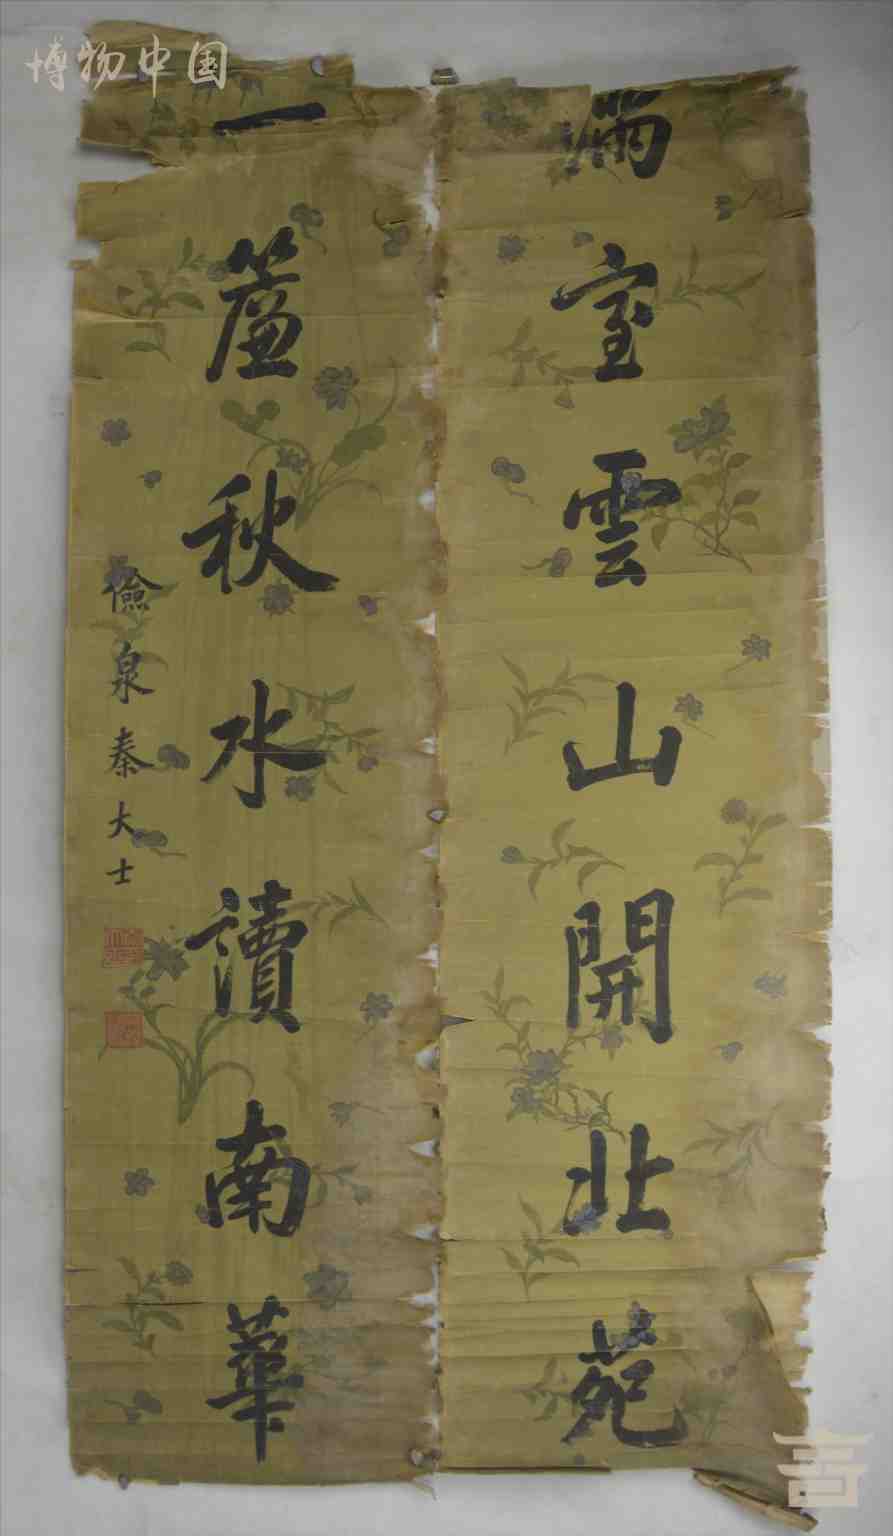 博物中国
满室雲山開北苑
一簾秋水讀南華
儉泉秦大士